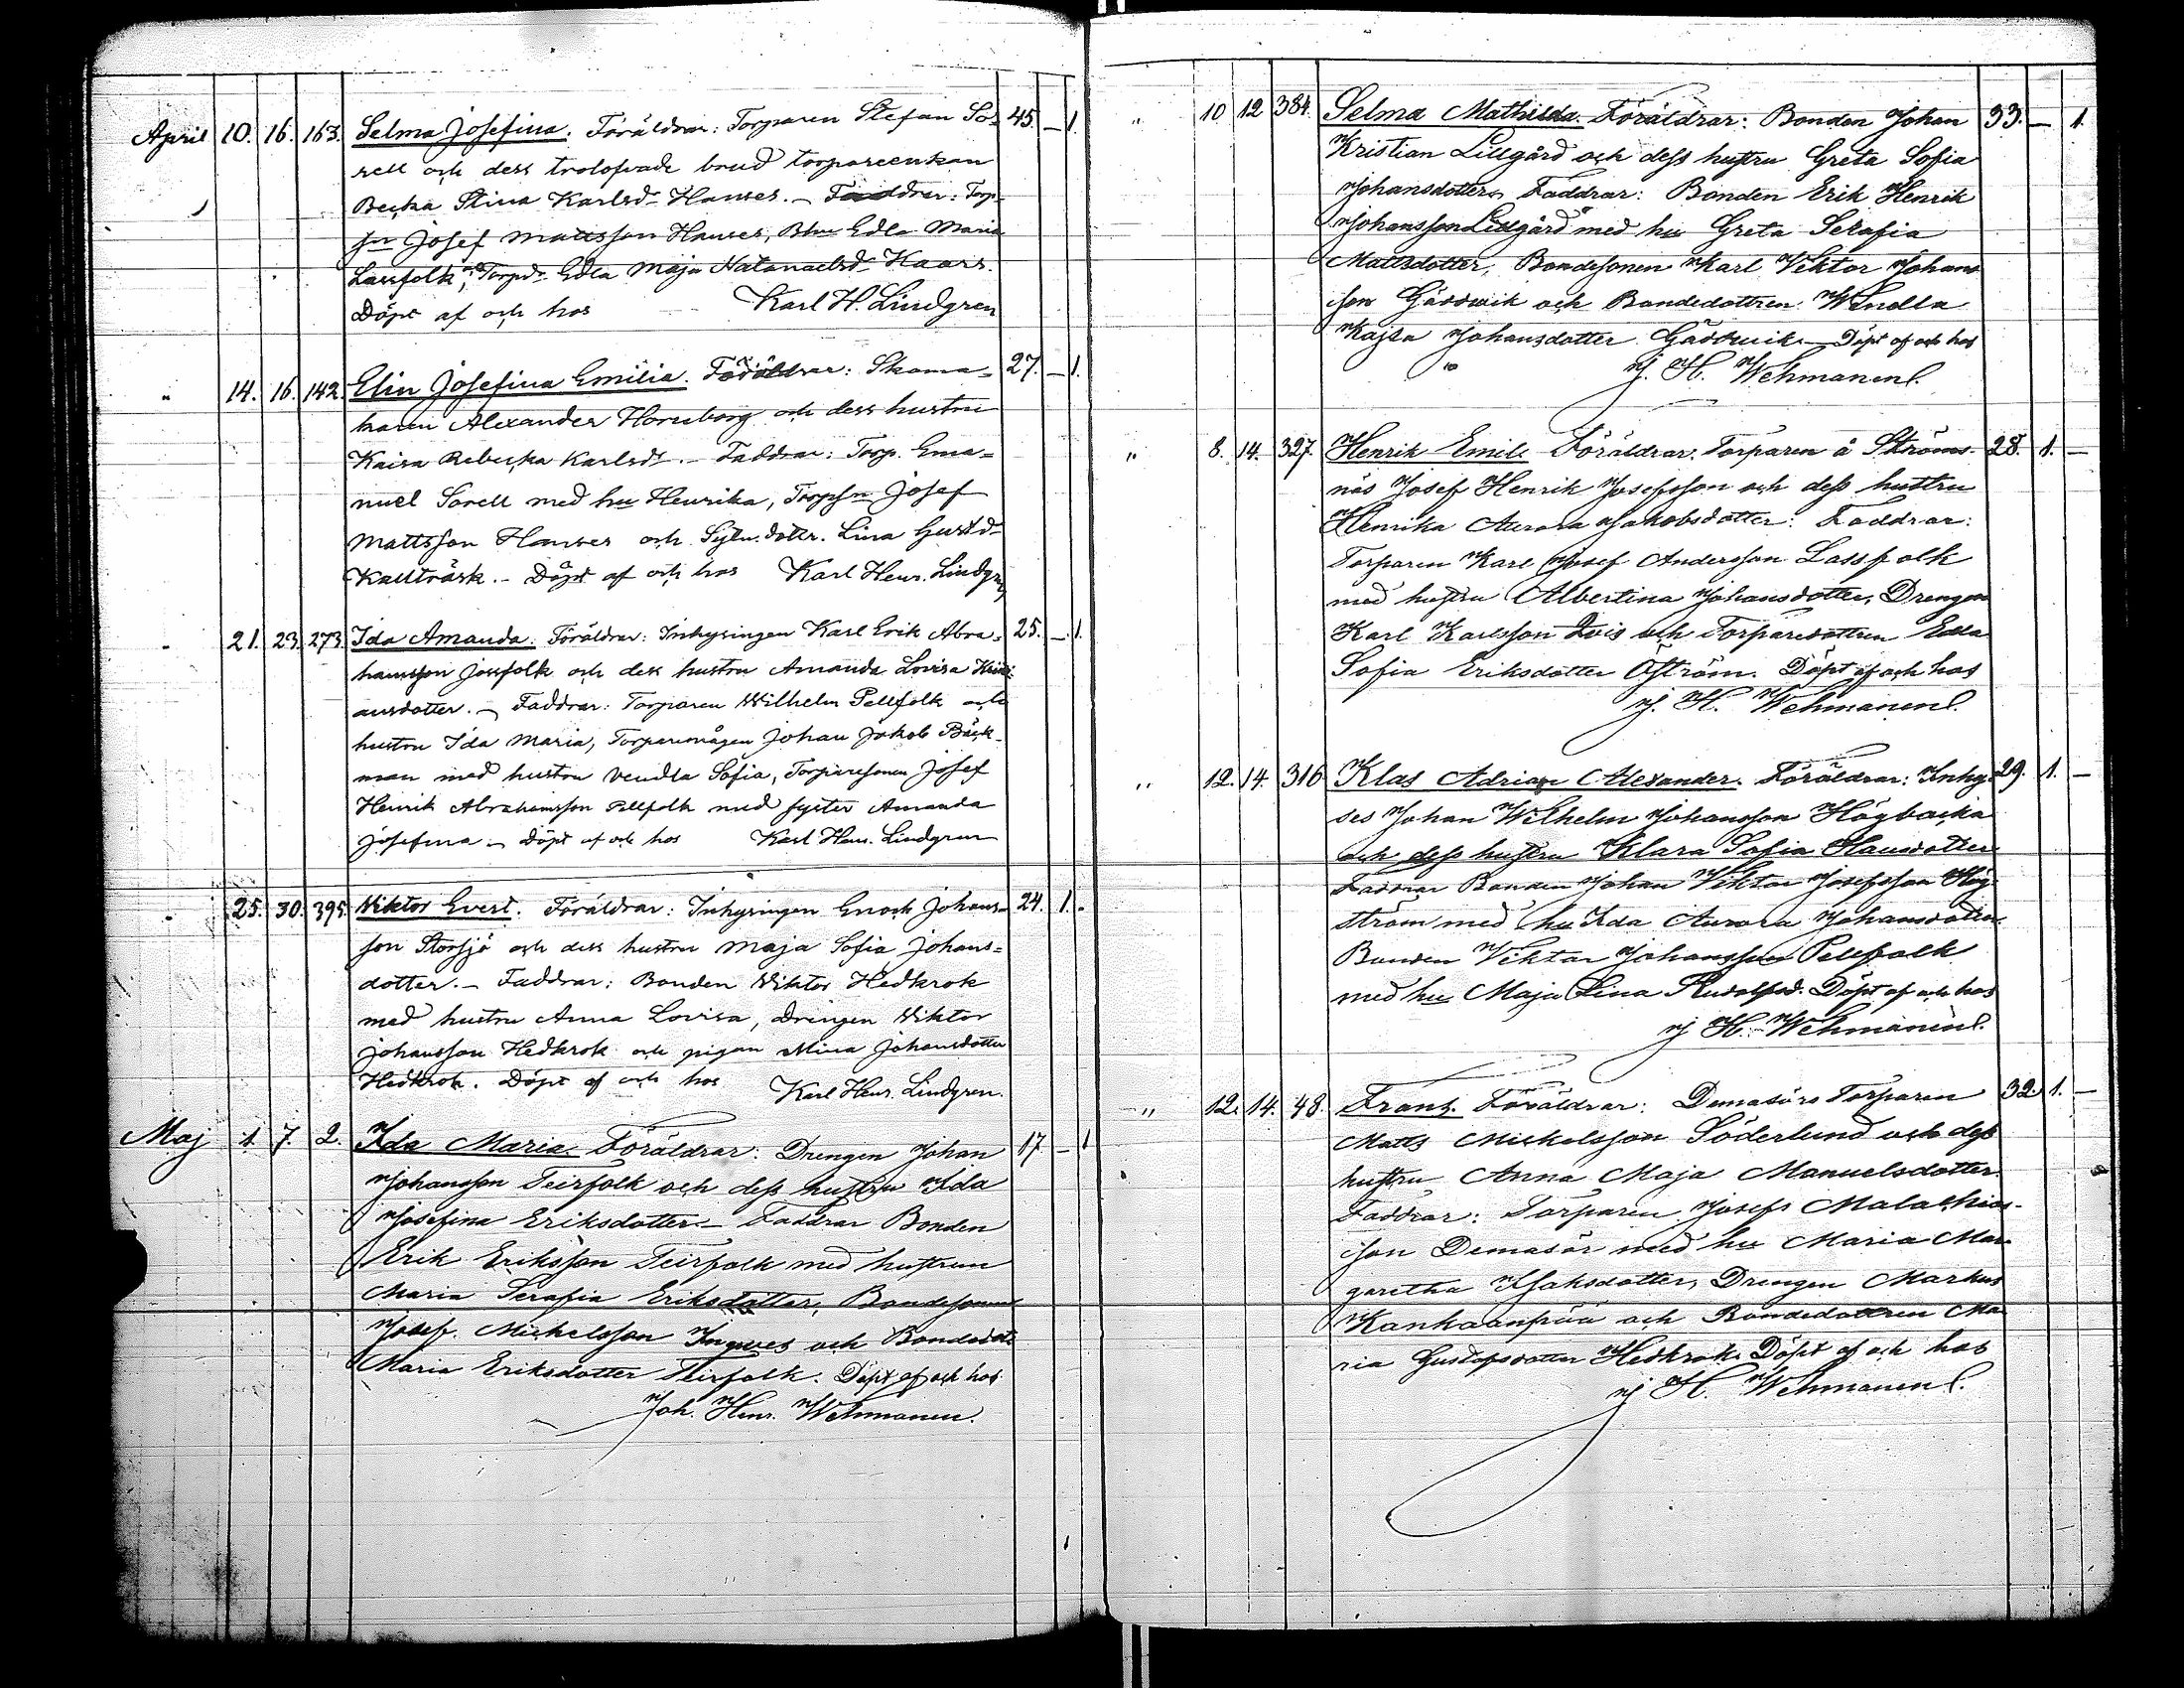 April 10. 16. 163. Selma Josefina. Föräldrar: Torparen Stefan So- 45. — 1.
rell och dess trolofvade brud torpareenkan
Becka Stina Karlsd. Hanses. – Faddrar: Torp-
sn Josef Mattsson Hanses, Bhu Edla Maria
Lassfolk, Torpd. Edla Maja Natanaelsd. Kaars.
Döpt af och hos Karl H. Lindgren
" 14. 16. 142. Elin Josefina Emilia. Föräldrar: Skoma- 27. — 1.
karen Alexander Hornborg och dess hustru
Kaisa Rebecka Karlsdr. – Faddrar: Torp. Ema-
nuel Sorell med hu Henrika, Torpsn Josef
Mattsson Hanses och Sytn. dottr. Lina Gustd
Kallträsk. – Döpt af och hos Karl Henr. Lindgren
" 21. 23. 273. Ida Amanda. Föräldrar: Inhysingen Karl Erik Abra- 25. — 1.
hamsson Jossfolk och dess hustru Amanda Lovisa Kristi-
ansdotter. – Faddrar: Torparen Wilhelm Pellfolk och
hustru Ida Maria, Torparemågen Johan Jakob Bäck-
man med hustru Vendla Sofia, Torparesonen Josef
Henrik Abrahamsson Pellfolk med syster Amanda
Josefina – Döpt af och hos Karl Henr. Lindgren
" 25. 30. 395. Viktor Evert. Föräldrar: Inhysingen Enock Johans- 24. 1. -
son Storsjö och dess hustru Maja Sofia Johans-
dotter. – Faddrar: Bonden Viktor Hedkrok
med hustru Anna Lovisa, Drängen Viktor
Johansson Hedkrok och pigan Mina Johansdotter
Hedkrok. Döpt af och hos Karl Henr. Lindgren.
Maj 1. 7. 2. Ida Maria. Föräldrar: Drengen Johan 17 — 1
Johansson Teirfolk och dess hustru Ida
Josefina Eriksdotter – Faddrar Bonden
Erik Eriksson Teirfolk med hustrun
Maria Serafia Eriksdotter, Bondesonen
Josef Mickelsson Ingves och Bondedotr
Maria Eriksdotter Teirfolk. Döpt af och hos
Joh. Henr. Wehmanen.
" 10 12 384. Selma Mathilda. Föräldrar: Bonden Johan 33. — 1.
Kristian Lillgård och dess hustru Greta Sofia
Johansdotter. Faddrar: Bonden Erik Henrik
Johansson Lillgård med hu Greta Serafia
Mattsdotter, Bondesonen Karl Viktor Johans
son Gäddvik och Bondedottren Wendla
Kajsa Johansdotter Gäddvik. — Döpt af och hos
" J. H. Wehmanen.
" 8. 14. 327. Henrik Emil. Föräldrar. Torparen å Ströms- 28. 1. —
näs Josef Henrik Josefsson och dess hustru
Henrika Aurora Jakobsdotter: Faddrar:
Torparen Karl Josef Andersson Lassfolk
med hustru Albertina Johansdotter, Drengen
Karl Karlsson och Torparedottren Edla
Sofia Eriksdotter Åström. Döpt af och hos
J. H. Wehmanen.
" 12. 14. 316 Klas Adrian Alexander. Föräldrar: Inhy- 29. 1. —
ses Johan Wilhelm Johansson Högbacka
och dess hustru Klara Sofia Hansdotter
Faddrar Bonden Johan Viktor Josefsson Hög-
ström med hu Ida Aurora Johansdotter.
Bonden Viktor Johansson Pellfolk
med hu Maja Lina Rudolfsd. Döpt af och hos
J. H. Wehmanen.
" 12. 14. 48. Frans. Föräldrar: Demasörs Torparen 32. 1. —
Matts Mickelsson Söderlund och dess
hustru Anna Maja Manuelsdotter.
Faddrar: Torparen Josef Malachias-
son Demasör med hu Maria Mar-
garetha Isaksdotter, Drengen Markus
Kankaanpää och Bondedottren Ma-
ria Gustafsdotter Hedkrok. Döpt af och hos
J. H. Wehmanen.